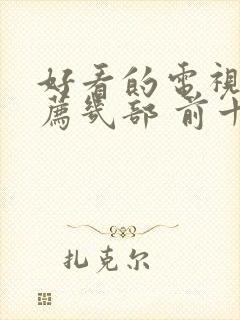 好看的電視
薦幾部 前十
扎克尔